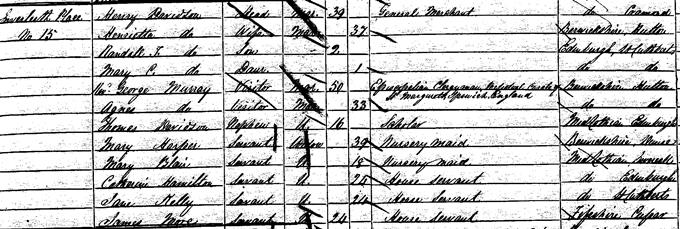 Inverleith Place Henry Davidson Head Mar. 39 General Merchant do Cramond
No 15 Henrietta do Wife Mar 37 Berwickshire, Hutton
Randall T. do Son 2 Edinburgh, St Cuthbert
Mary C. do Daur 1 do do
Wm George Murray Visitor Mar. 50 Episcopalian Clergyman of Berwickshire Hutton
St Margarets Ipswich, England
Agnes do Visitor Mar 33 do do
Thomas Davidson Nephew U. 16 Scholar MidLothian Edinburgh
Mary Harper Servant Widow 39 Nursery maid Berwickshire
Mary Blair Servant U. 18 Nursery maid MidLothian
Catherine Hamilton Servant U. 25 House Servant do Edinburgh
Jane Kelly Servant U. 24 House Servant do St Cuthberts
James Servant U 24 House Servant Fifeshire Cupar